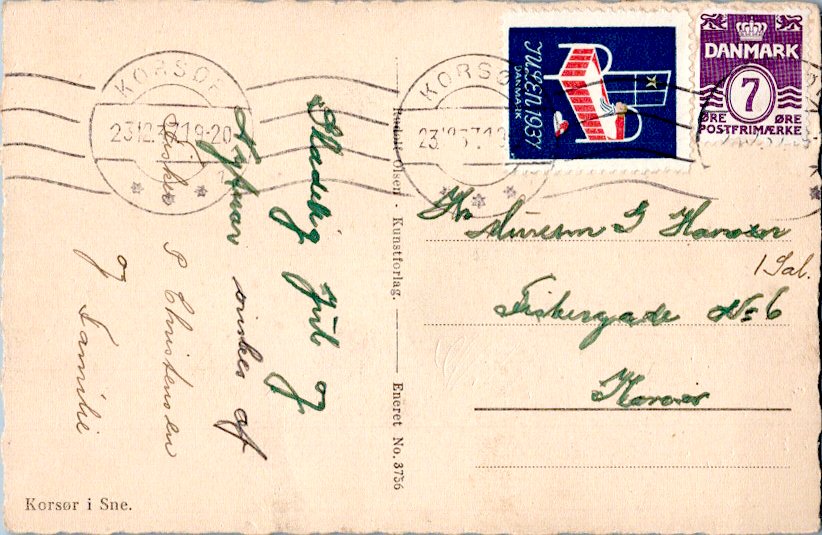 KORSØR
23.12.37.19-20
KORSØR
23.12.37.19
JULEN 1937
DANMARK
DANMARK
7
ØRE ØRE
POSTFRIMÆRKE
Glædelig Jul og
Nytaar ønskes af
ønskes
P Christensen
og Familie
Rudolf Olsen · Kunstforlag. Eneret No. 3756
Hr G
1 Sal.
Fiskergade No 6
Korsør
Korsør i Sne.